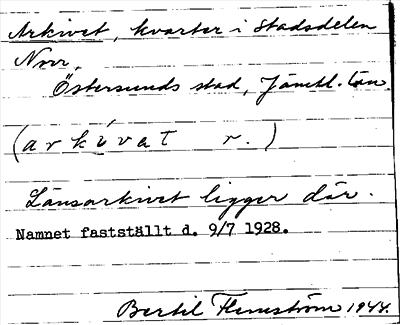 Arkivet, kvarter i Stadsdelen
Norr.
Östersunds stad, Jämtl. län
(arkivat r.)
Länsarkivet ligger där.
Namnet fastställt d. 9/7 1928.
Bertil Flemström 1944.